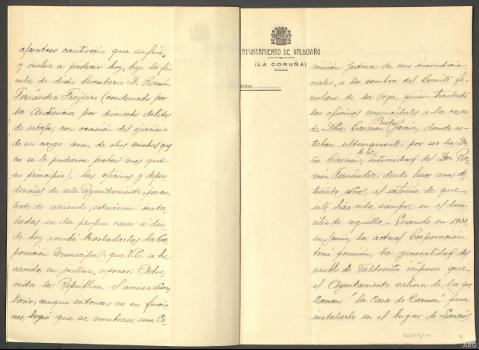 afrentoso cautiverio que sufría,
y vuelve a padecer hoy, bajo la fé-
rula de dicho Secretario D. Ramón
Fernández Freijeiro (condenado por
la Audiencia por dieciocho delitos
de estafa, con ocasión del ejercicio
de su cargo, amen de otros muchos que
no se le pudieron probar mas que
en principio), las oficinas y depen-
dencias de este Ayuntamiento, por con-
trato de arriendo, estuvieron insta-
ladas en la propia casa a don-
de hoy acordó trasladarlas la Cor-
poración Municipal que V.E. se ha
servido en justicia, suspender. Adve-
nida la República, el mismo Secre-
tario, aunque entonces no en funcio-
nes, logró que se nombrase una Co-
AYUNTAMIENTO DE VALDOVIÑO
(LA CORUÑA)
misión gestora de sus incondicio-
nales, a la sombra del Comité
de la
las oficinas municipales a la casa
de Doña Carmen García, donde es-
taban últimamente, por ser la Do-
ña Carmen, intimidad del Don Ra-
món Fernández, desde hace mas de
treinta años, al extremo de que
este hizo vida siempre en el domi-
cilio de aquella. Cuando en 1931,
en Junio, la actual Corporación
tomó posesión, la generalidad del
pueblo de Valdoviño impuso que
el Ayuntamiento saliera de la que
llaman "la Casa de Carmen" para
instalarse en el lugar de